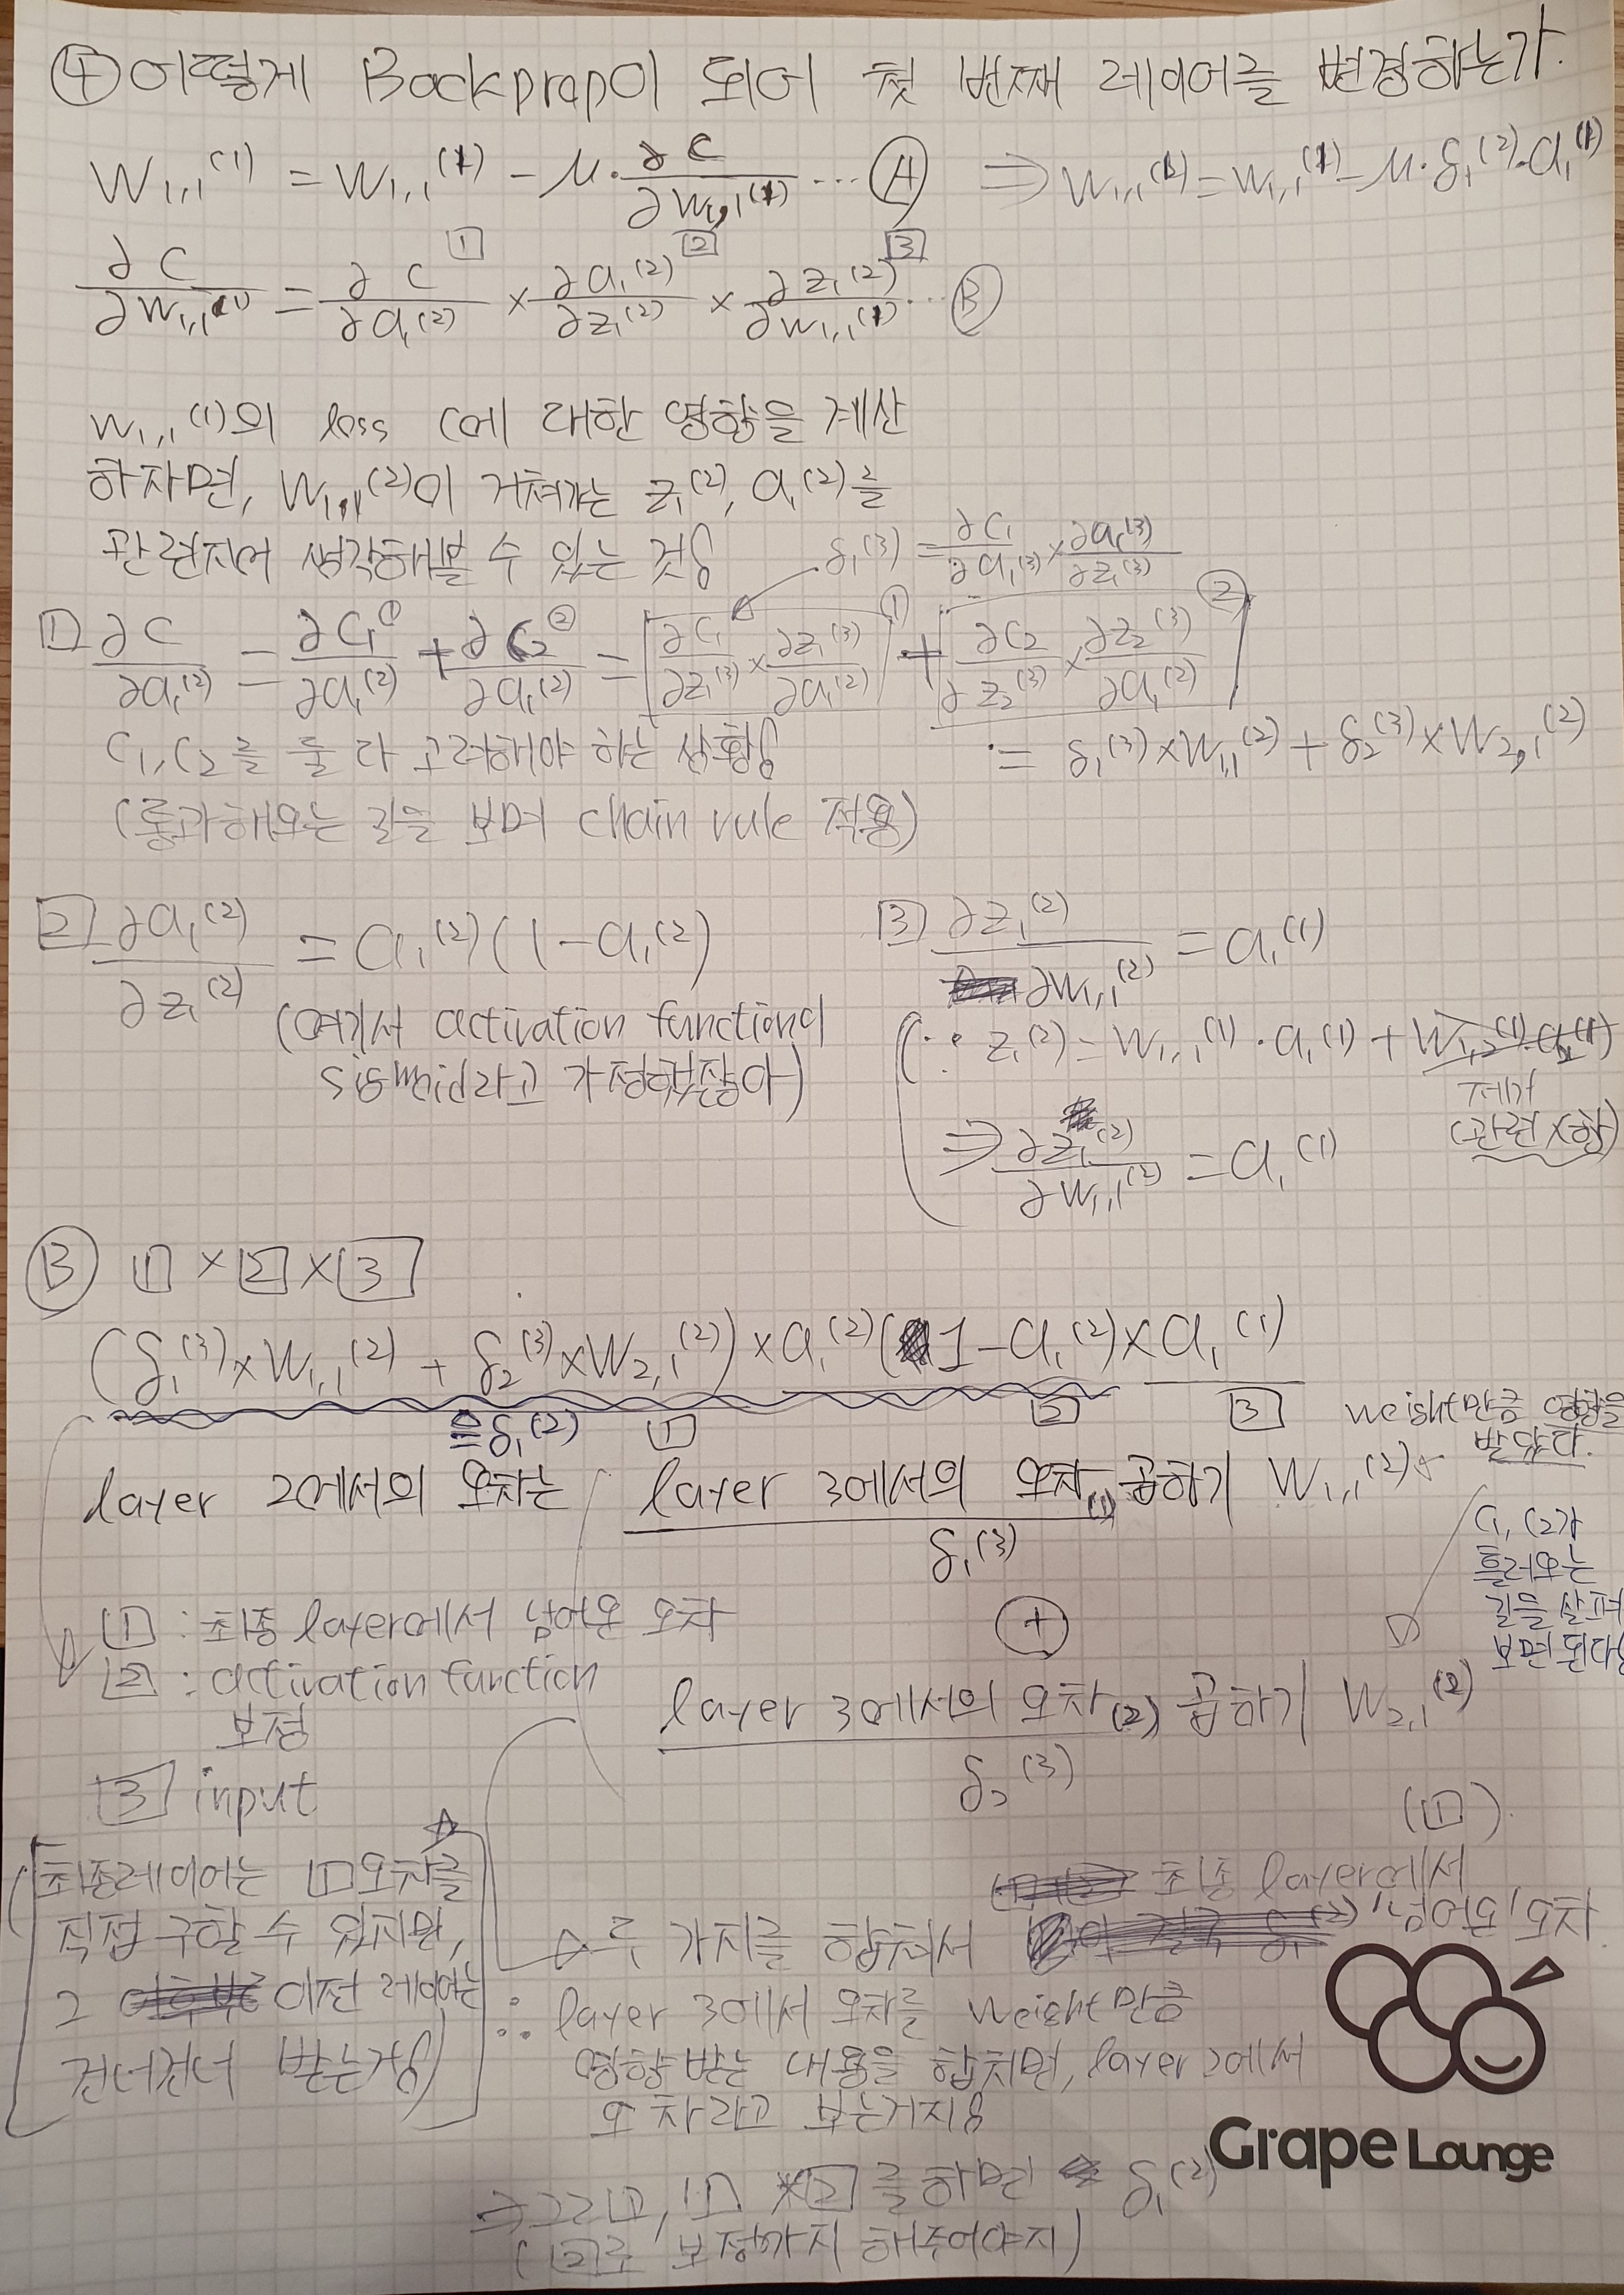 ④ 어떻게 Backprop이 되어 첫 번째 레이어를 변경하는가.
W₁,₁⁽¹⁾ = W₁,₁⁽¹⁾ - μ · ∂C/∂W₁,₁⁽¹⁾ ... Ⓐ ⇒ W₁,₁⁽¹⁾ = W₁,₁⁽¹⁾ - μ · δ₁⁽²⁾ · a₁⁽¹⁾
∂C/∂W₁,₁⁽¹⁾ = ∂C/∂a₁⁽²⁾ [1] × ∂a₁⁽²⁾/∂z₁⁽²⁾ [2] × ∂z₁⁽²⁾/∂W₁,₁⁽¹⁾ [3] ... Ⓑ
W₁,₁⁽¹⁾의 loss C에 대한 영향을 계산
하자면, W₁,₁⁽²⁾이 거쳐가는 z₁⁽²⁾, a₁⁽²⁾를
관련지어 생각해볼 수 있는 것!
δ₁⁽³⁾ = ∂C₁/∂a₁⁽³⁾ × ∂a₁⁽³⁾/∂z₁⁽³⁾
[1] ∂C/∂a₁⁽²⁾ = ∂C₁/∂a₁⁽²⁾ ① + ∂C₂/∂a₁⁽²⁾ ② = [∂C₁/∂z₁⁽³⁾ × ∂z₁⁽³⁾/∂a₁⁽²⁾] ① + [∂C₂/∂z₂⁽³⁾ × ∂z₂⁽³⁾/∂a₁⁽²⁾] ②
C₁, C₂를 둘 다 고려해야 하는 상황!
= δ₁⁽³⁾ × W₁,₁⁽²⁾ + δ₂⁽³⁾ × W₂,₁⁽²⁾
(통과해오는 길을 보며 chain rule 적용)
[2] ∂a₁⁽²⁾/∂z₁⁽²⁾ = a₁⁽²⁾(1 - a₁⁽²⁾)
(여기서 activation function이
sigmoid라고 가정했잖아)
[3] ∂z₁⁽²⁾/∂W₁,₁⁽²⁾ = a₁⁽¹⁾
(∵ z₁⁽²⁾ = W₁,₁⁽¹⁾ · a₁⁽¹⁾ + W₁,₂⁽¹⁾ · a₂⁽¹⁾)
제거
(관련 X항)
⇒ ∂z₁⁽²⁾/∂W₁,₁⁽²⁾ = a₁⁽¹⁾
Ⓑ [1] × [2] × [3]
(δ₁⁽³⁾ × W₁,₁⁽²⁾ + δ₂⁽³⁾ × W₂,₁⁽²⁾) × a₁⁽²⁾(1 - a₁⁽²⁾) × a₁⁽¹⁾
= δ₁⁽²⁾ [1] [2] [3]
weight만큼 영향을
받았다.
layer 2에서의 오차는 layer 3에서의 오차(1) 곱하기 W₁,₁⁽²⁾
δ₁⁽³⁾
C₁, C₂가
흘러오는
길을 살펴
보면 된다!
⊕
layer 3에서의 오차(2) 곱하기 W₂,₁⁽²⁾
δ₂⁽³⁾
[1] : 최종 layer에서 넘어온 오차
[2] : activation function
보정
[3] input
최종레이어는 [1]오차를
직접 구할 수 있지만,
그 이전 레이어는
건너건너 받는거!
([1])
두 가지를 합쳐서 최종 layer에서
'넘어온' 오차
∴ layer 3에서 오차를 weight만큼
영향 받는 내용을 합치면, layer 2에서
오차라고 보는거지!
⇒ 그리고, [1] × [2]를 하면 δ₁⁽²⁾
([2]로 보정까지 해주어야지)
Grape Lounge